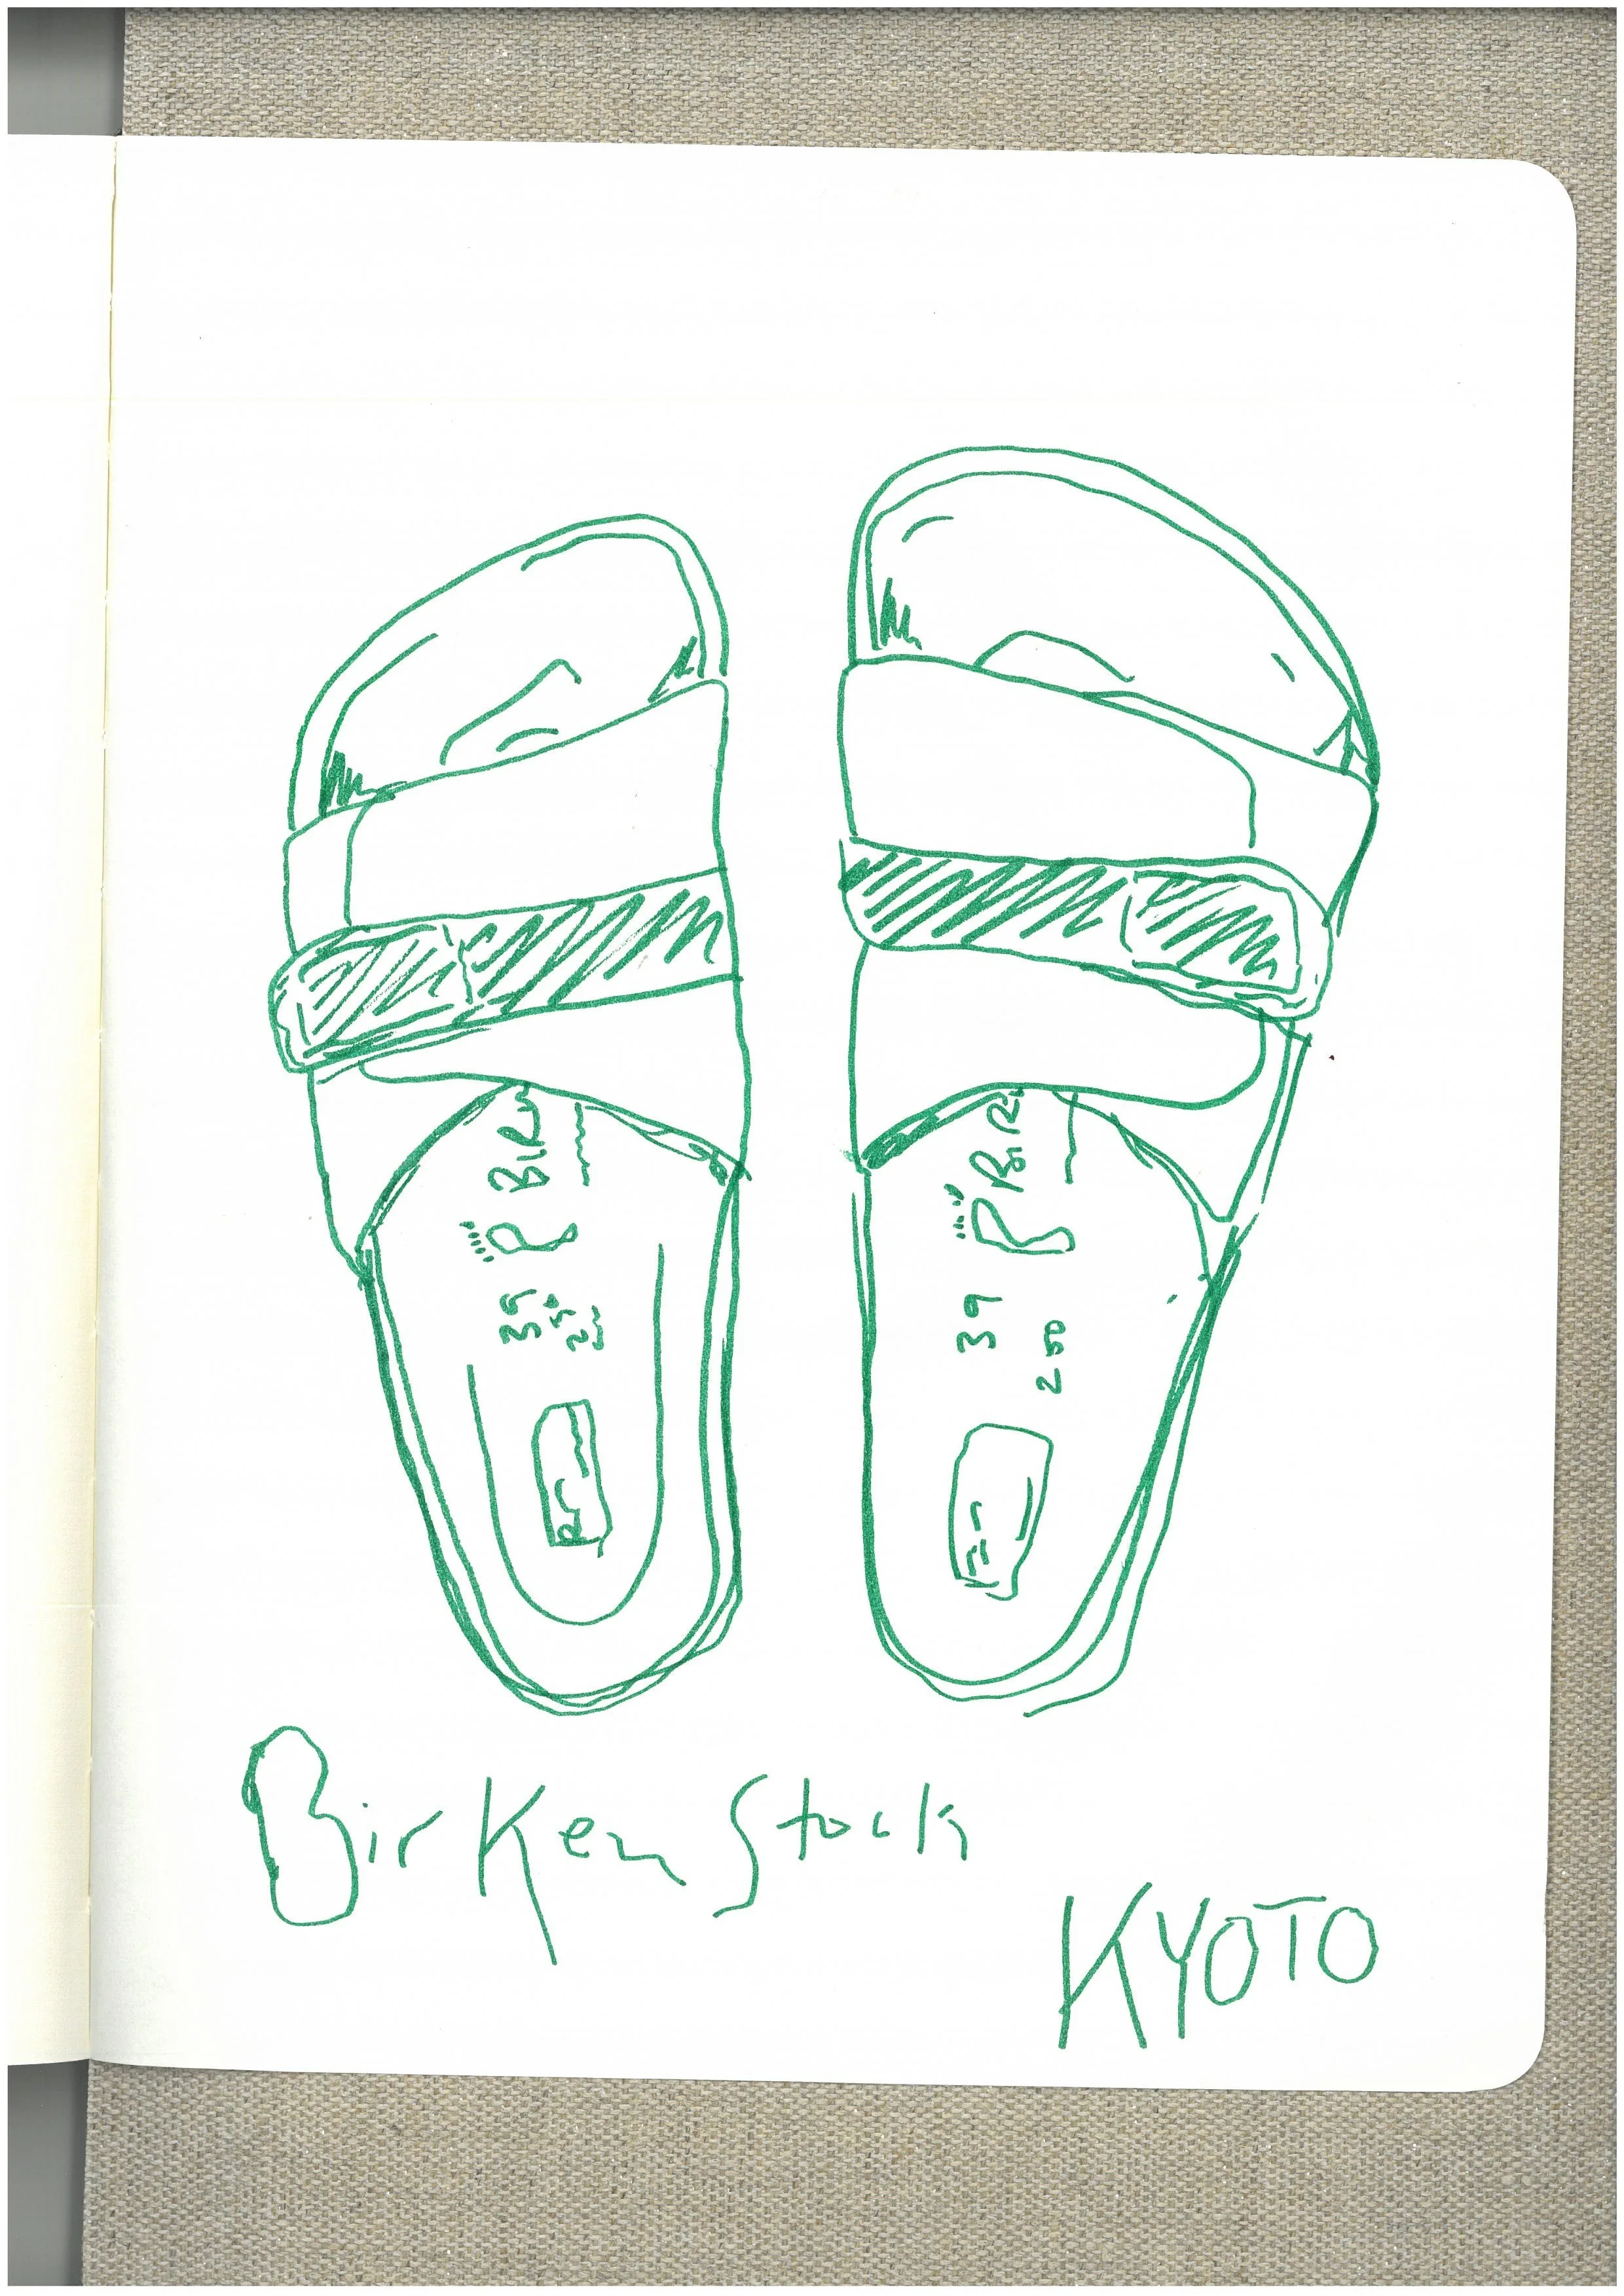 BIR
39
250
BIR
39
250
BirKenStock
KYOTO